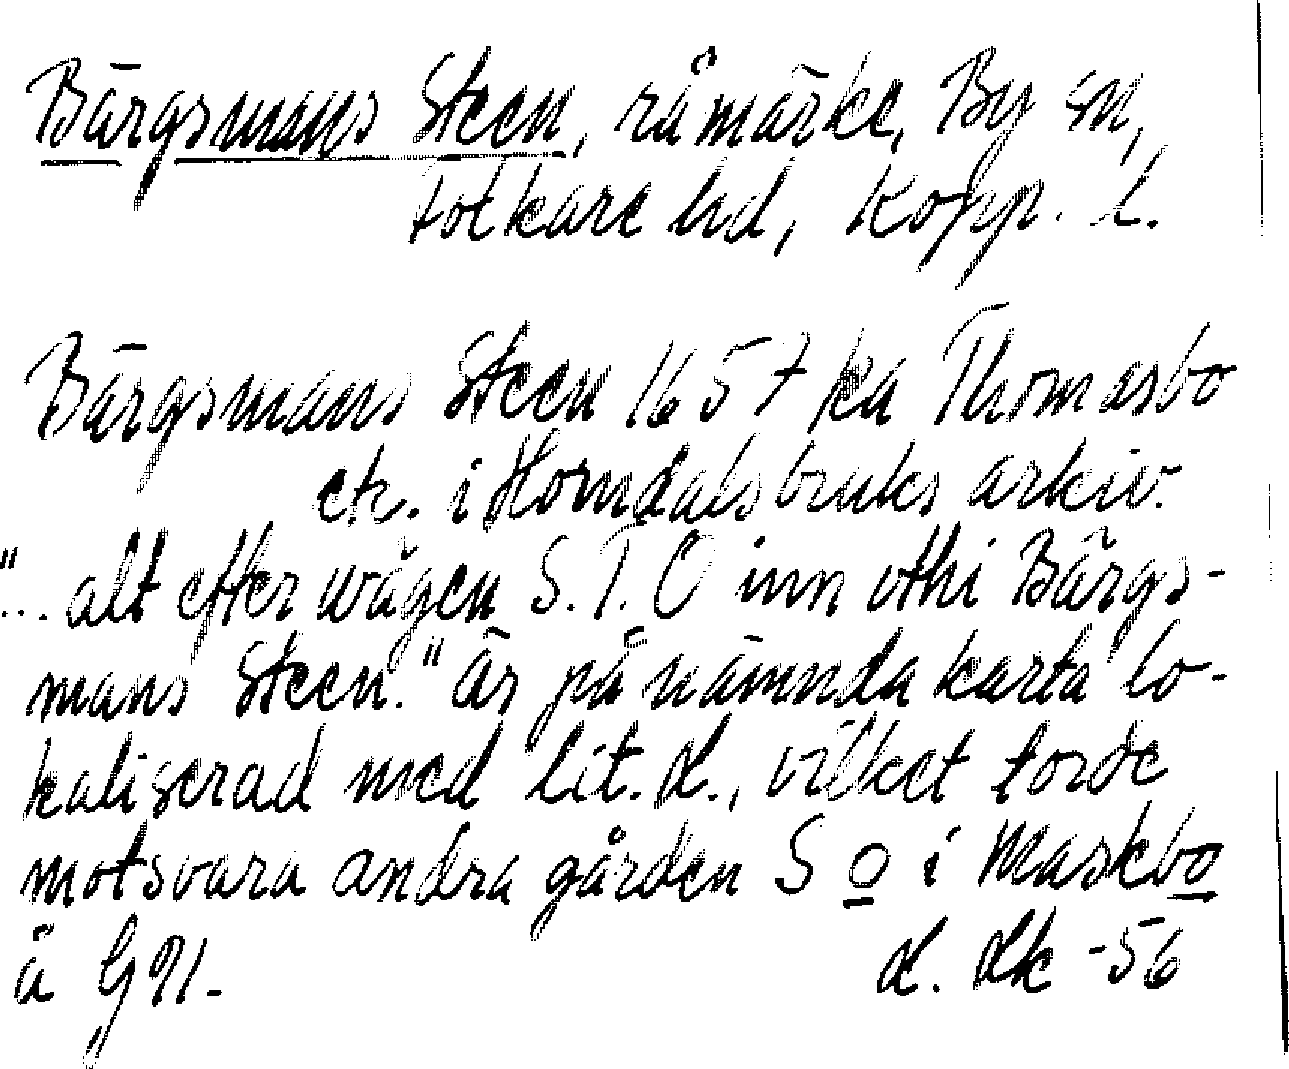 Bärgsmans Steen, råmärke, By sn,
Folkare hd, Kopp. l.
Bärgsmans Steen 1657 ka Thomasbo
etc. i Horndalsbruks arkiv.
"... alt efter wägen S.T.O inn vthi Bärgs-
mans Steen." är på nämnda karta lo-
kaliserad med lit. L., vilket torde
motsvara andra gården S o i Maskbo
å G91.
L. Lk -56